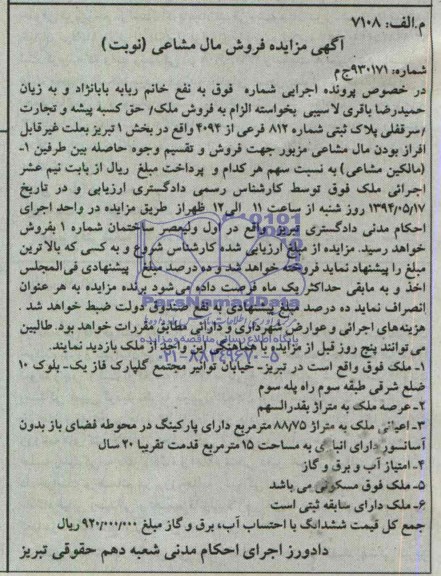 م.الف: ۷۱۰۸
آگهی مزایده فروش مال مشاعی (نوبت)
شماره: ۹۳۰۱۷۱ج م
در خصوص پرونده اجرایی شماره فوق به نفع خانم ربابه بابانژاد و به زیان
حمیدرضا باقری لاسیبی بخواسته الزام به فروش ملک/ حق کسبه پیشه و تجارت
/سرقفلی پلاک ثبتی شماره ۸۱۲ فرعی از ۴۰۹۴ واقع در بخش ۱ تبریز بعلت غیرقابل
افراز بودن مال مشاعی مزبور جهت فروش و تقسیم وجوه حاصله بین طرفین ۱-
(مالکین مشاعی) به نسبت سهم هر کدام و پرداخت مبلغ ریال از بابت نیم عشر
اجرائی ملک فوق توسط کارشناس رسمی دادگستری ارزیابی و در تاریخ
۱۳۹۴/۰۵/۱۷ روز شنبه از ساعت ۱۱ الی ۱۲ ظهراز طریق مزایده در واحد اجرای
احکام مدنی دادگستری تبریز واقع در اول ولیعصر ساختمان شماره ۱ بفروش
خواهد رسید. مزایده از مبلغ ارزیابی شده کارشناس شروع و به کسی که بالاترین
مبلغ را پیشنهاد نماید فروخته خواهد شد و ده درصد مبلغ پیشنهادی فی المجلس
اخذ و به مابقی حداکثر یک ماه فرصت داده می شود برنده مزایده به هر عنوان
انصراف نماید ده درصد مبلغ پیشنهادی به نفع صندوق دولت ضبط خواهد شد.
هزینه های اجرائی و عوارض شهرداری و دارائی مطابق مقررات خواهد بود. طالبین
می توانند پنج روز قبل از مزایده با هماهنگی این واحد از ملک بازدید نمایند.
۱- ملک فوق واقع است در تبریز- خیابان توانیر مجتمع گلپارک فاز یک- بلوک ۱۰
ضلع شرقی طبقه سوم راه پله سوم
۲- عرصه ملک به متراژ بقدرالسهم
۳- اعیانی ملک به متراژ ۸۸/۷۵ مترمربع دارای پارکینگ در محوطه فضای باز بدون
آسانسور دارای انباری به مساحت ۱۵ مترمربع قدمت تقریبا ۲۰ سال
۴- امتیاز آب و برق و گاز
۵- ملک فوق مسکونی می باشد
۶- ملک دارای سابقه ثبتی است
جمع کل قیمت ششدانگ با احتساب آب، برق و گاز مبلغ ۹۲۰/۰۰۰/۰۰۰ ریال
دادورز اجرای احکام مدنی شعبه دهم حقوقی تبریز
ParsNamadData
پایگاه اطلاع رسانی مناقصه و مزایده
۰۲۱-۸۸۳۴۹۶۷۰-۵